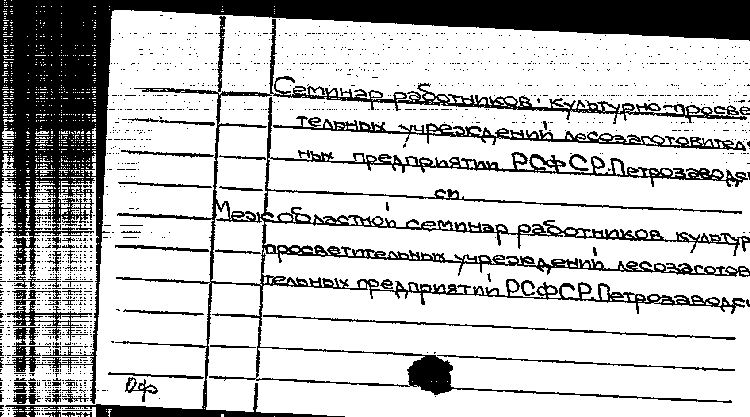 Семинар работников культурно-просве
тельных учреждений лесозаготовитель
ных предприятий РСФСР. Петрозаводск
сп.
Межобластной семинар работников культур
просветительных учреждений лесозаготов
тельных предприятий РСФСР. Петрозаводск